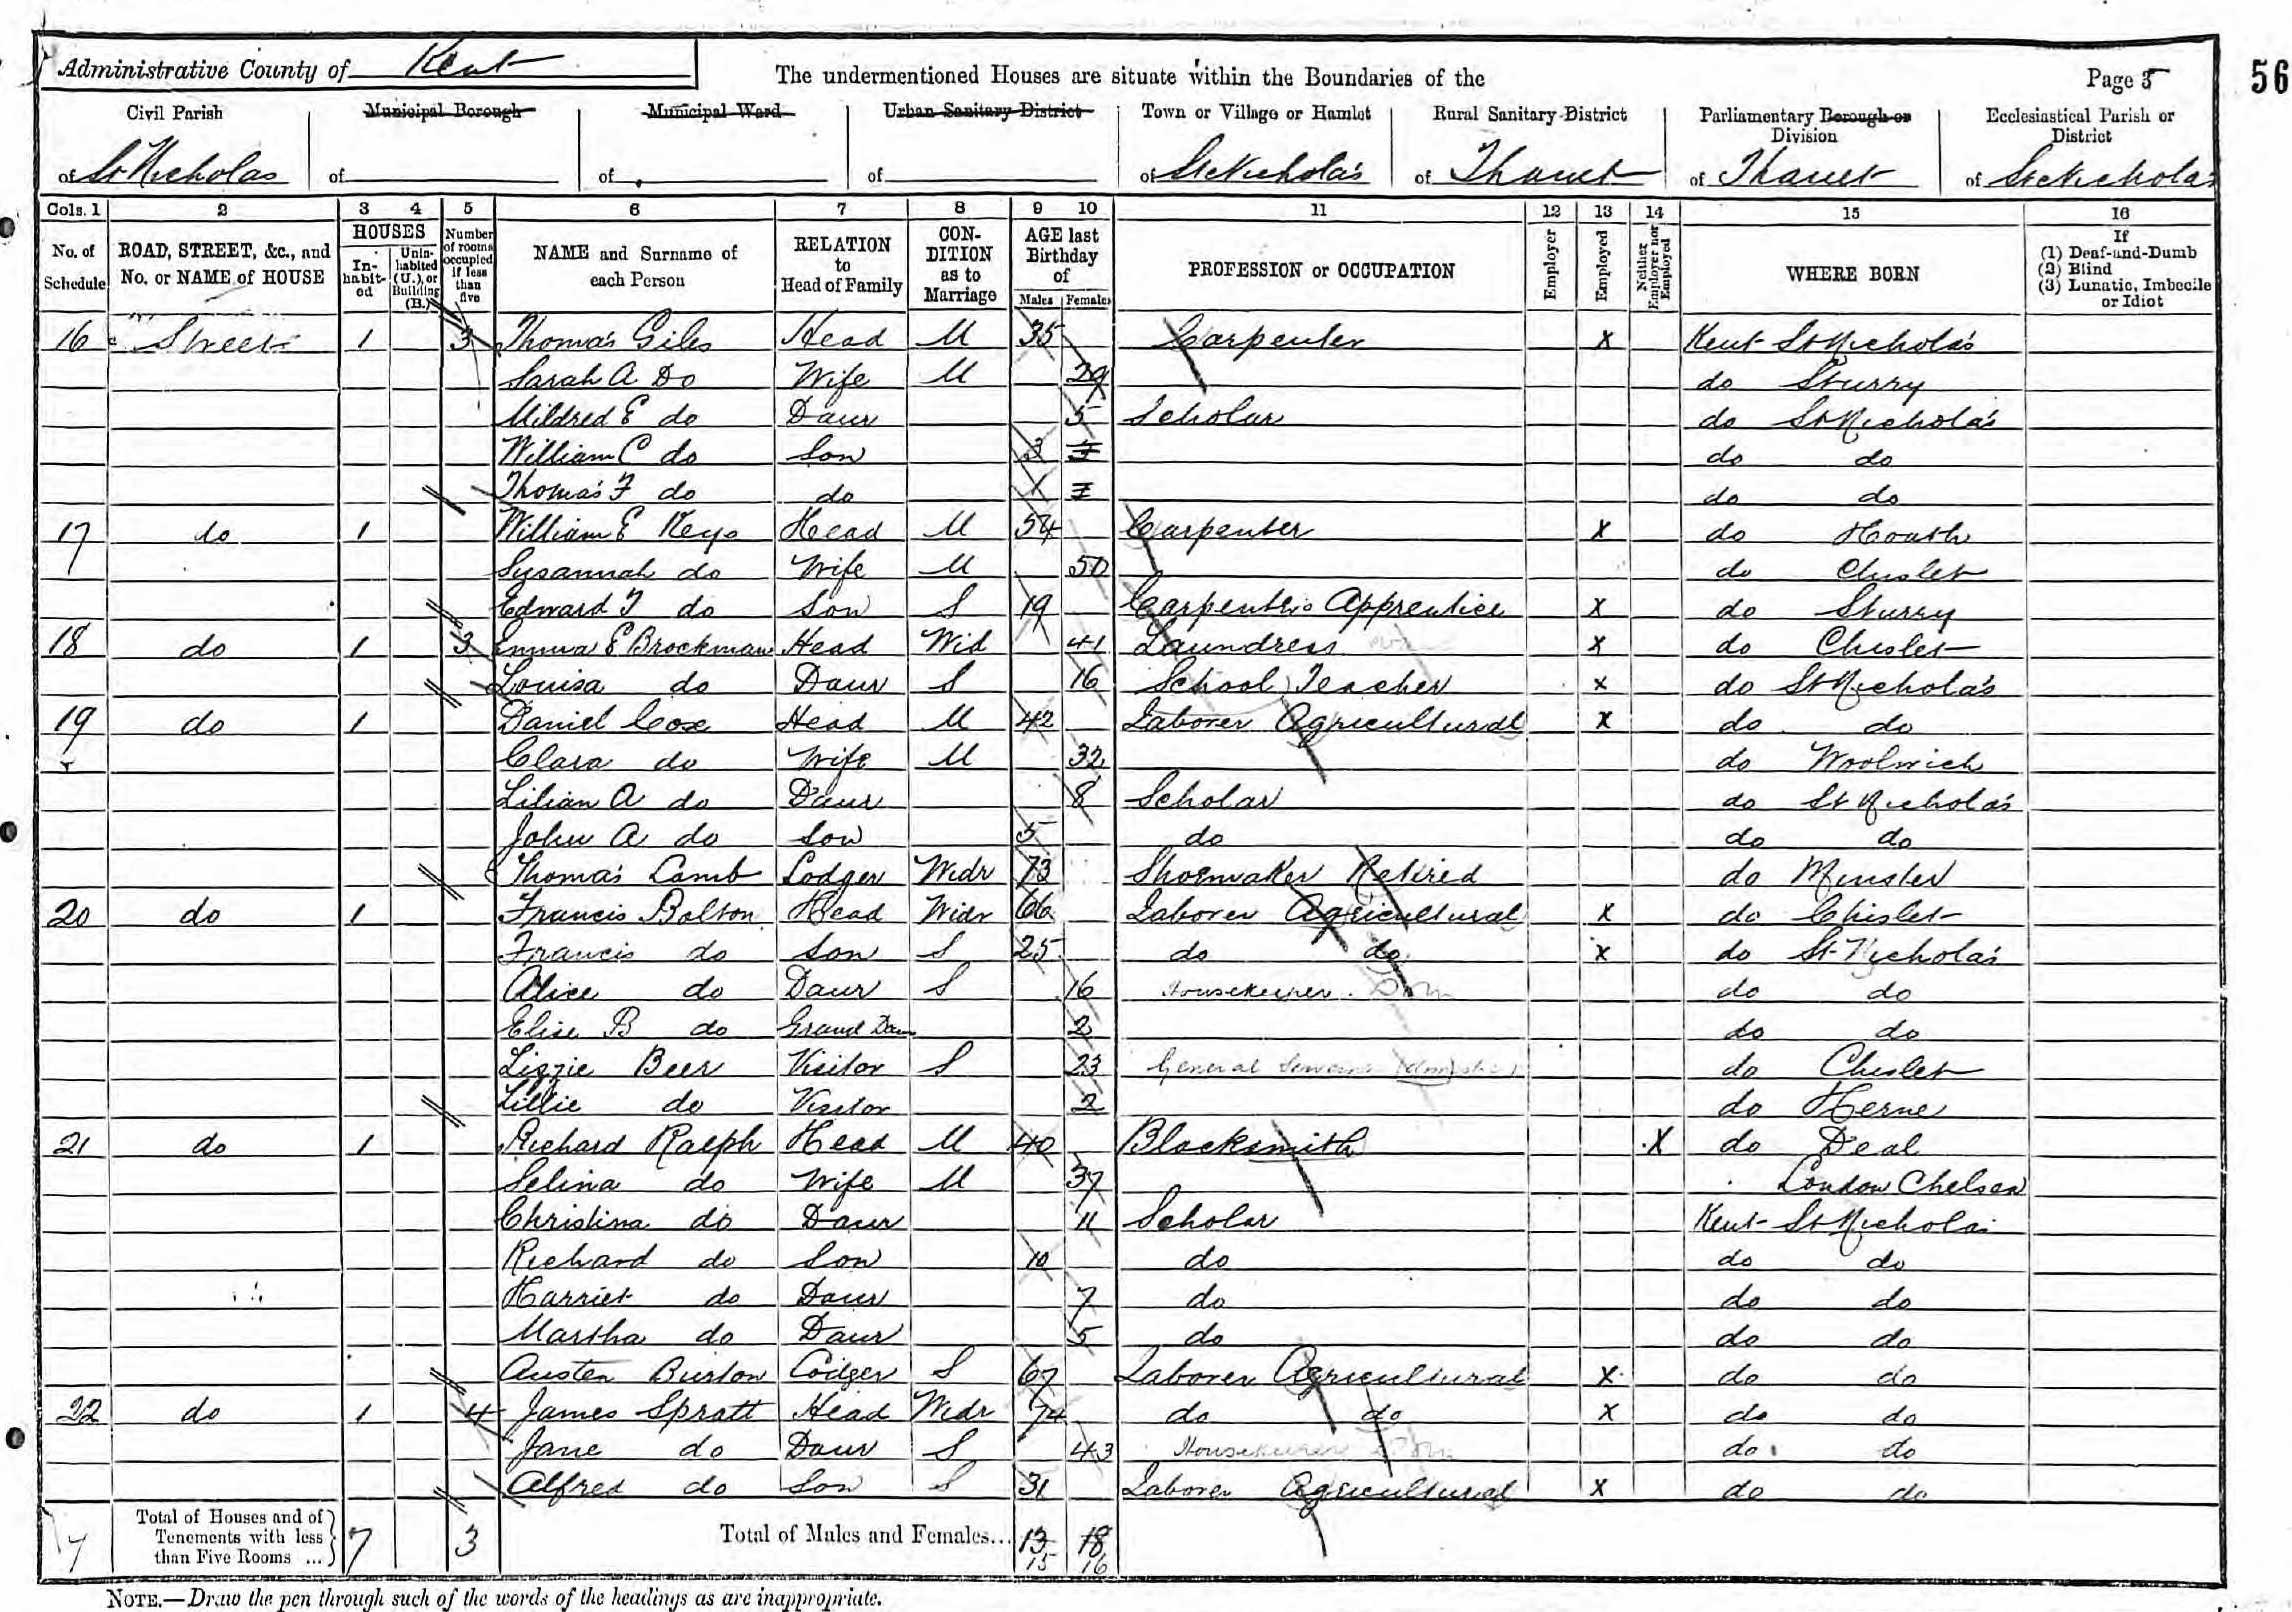 Administrative County of Kent
The undermentioned Houses are situate within the Boundaries of the
Page 5
56
Civil Parish Municipal Borough Municipal Ward Urban Sanitary District Town or Village or Hamlet Rural Sanitary District Parliamentary Borough or Division Ecclesiastical Parish or District
of St Nicholas of of of of St Nicholas of Thanet of Thanet of St Nicholas
Cols. 1 2 3 4 5 6 7 8 9 10 11 12 13 14 15 16
No. of Schedule ROAD, STREET, &c., and No. or NAME of HOUSE HOUSES Inhabited Uninhabited (U.), or Building (B.) Number of rooms occupied if less than five NAME and Surname of each Person RELATION to Head of Family CONDITION as to Marriage AGE last Birthday of Males Females PROFESSION or OCCUPATION Employer Employed Neither Employer nor Employed WHERE BORN If (1) Deaf-and-Dumb (2) Blind (3) Lunatic, Imbecile or Idiot
16 Street 1 3 Thomas Giles Head M 35 Carpenter X Kent St Nicholas
Sarah A Do Wife M 29 do Sturry
Mildred E do Daur 5 Scholar do St Nicholas
William C do Son 3 do do
Thomas F do do 1 do do
17 do 1 William E Keys Head M 54 Carpenter X do Hoath
Susannah do Wife M 50 do Chislet
Edward T do Son S 19 Carpenters Apprentice X do Sturry
18 do 1 3 Emma E Brockman Head Wid 41 Laundress X do Chislet
Louisa do Daur S 16 School Teacher X do St Nicholas
19 do 1 Daniel Cox Head M 42 Laborer Agricultural X do do
Clara do Wife M 32 do Woolwich
Lilian A do Daur 8 Scholar do St Nicholas
John A do Son 5 do do do
Thomas Lamb Lodger Widr 73 Shoemaker Retired do Minster
20 do 1 Francis Bolton Head Widr 66 Laborer Agricultural X do Chislet
Francis do Son S 25 do do X do St Nicholas
Alice do Daur S 16 Housekeeper Dom do do
Elise B do Grand Daur 2 do do
Lizzie Beer Visitor S 23 General Servant (domestic) do Chislet
Lillie do Visitor 2 do Herne
21 do 1 Richard Ralph Head M 40 Blacksmith X do Deal
Selina do Wife M 37 London Chelsea
Christina do Daur 11 Scholar Kent St Nicholas
Richard do Son 10 do do do
Harriet do Daur 7 do do do
Martha do Daur 5 do do do
Austen Burton Lodger S 67 Laborer Agricultural X do do
22 do 1 4 James Spratt Head Widr 74 do do X do do
Jane do Daur S 43 Housekeeper Dom do do
Alfred do Son S 31 Laborer Agricultural X do do
7 Total of Houses and of Tenements with less than Five Rooms ... 7 3 Total of Males and Females... 13 18
15 16
NOTE.—Draw the pen through such of the words of the headings as are inappropriate.